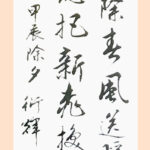 除春風送
把新桃換
甲辰除夕 衍輝